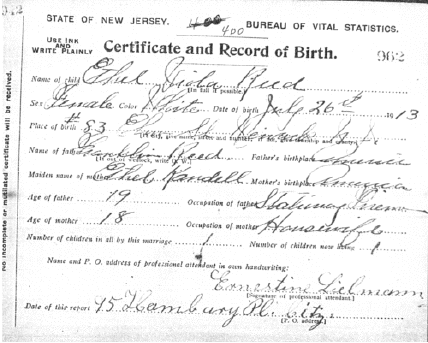 962
STATE OF NEW JERSEY. 400 BUREAU OF VITAL STATISTICS.
USE INK AND WRITE PLAINLY
Certificate and Record of Birth.
962
Name of child Ethel Viola Reed
(in full if possible)
Sex Female Color White Date of birth July 26th 1913
Place of birth # 83 St. Newark N. J.
Name of father Franklin Reed Father's birthplace America
Maiden name of mother Ethel Randell Mother's birthplace America
Age of father 19 Occupation of father Stationary Fireman
Age of mother 18 Occupation of mother Housewife
Number of children in all by this marriage 1 Number of children now living 1
Name and P. O. address of professional attendant in own handwriting:
Ernestine
[Signature of professional attendant.]
Date of this report 75 Hamburg Pl. city
[P. O. address.]
no incomplete or mutilated certificate will be received.